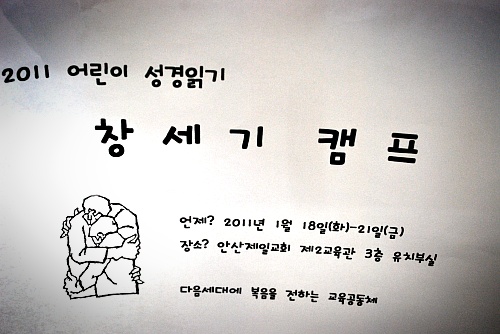 2011 어린이 성경읽기
창세기 캠프
언제? 2011년 1월 18일(화)-21일(금)
장소? 안산제일교회 제2교육관 3층 유치부실
다음세대에 복음을 전하는 교육공동체